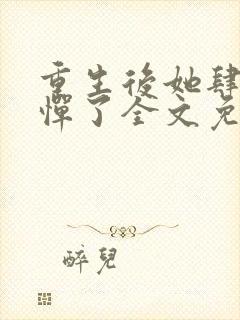 重生後她肆
憚了全文免
醉兒